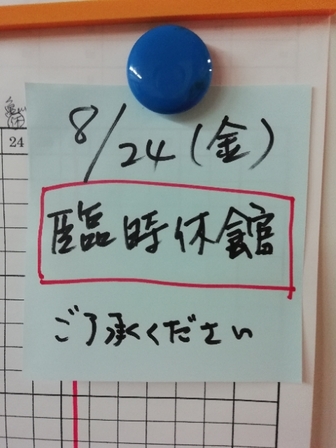 8/24(金)
臨時休館
ご了承ください
24